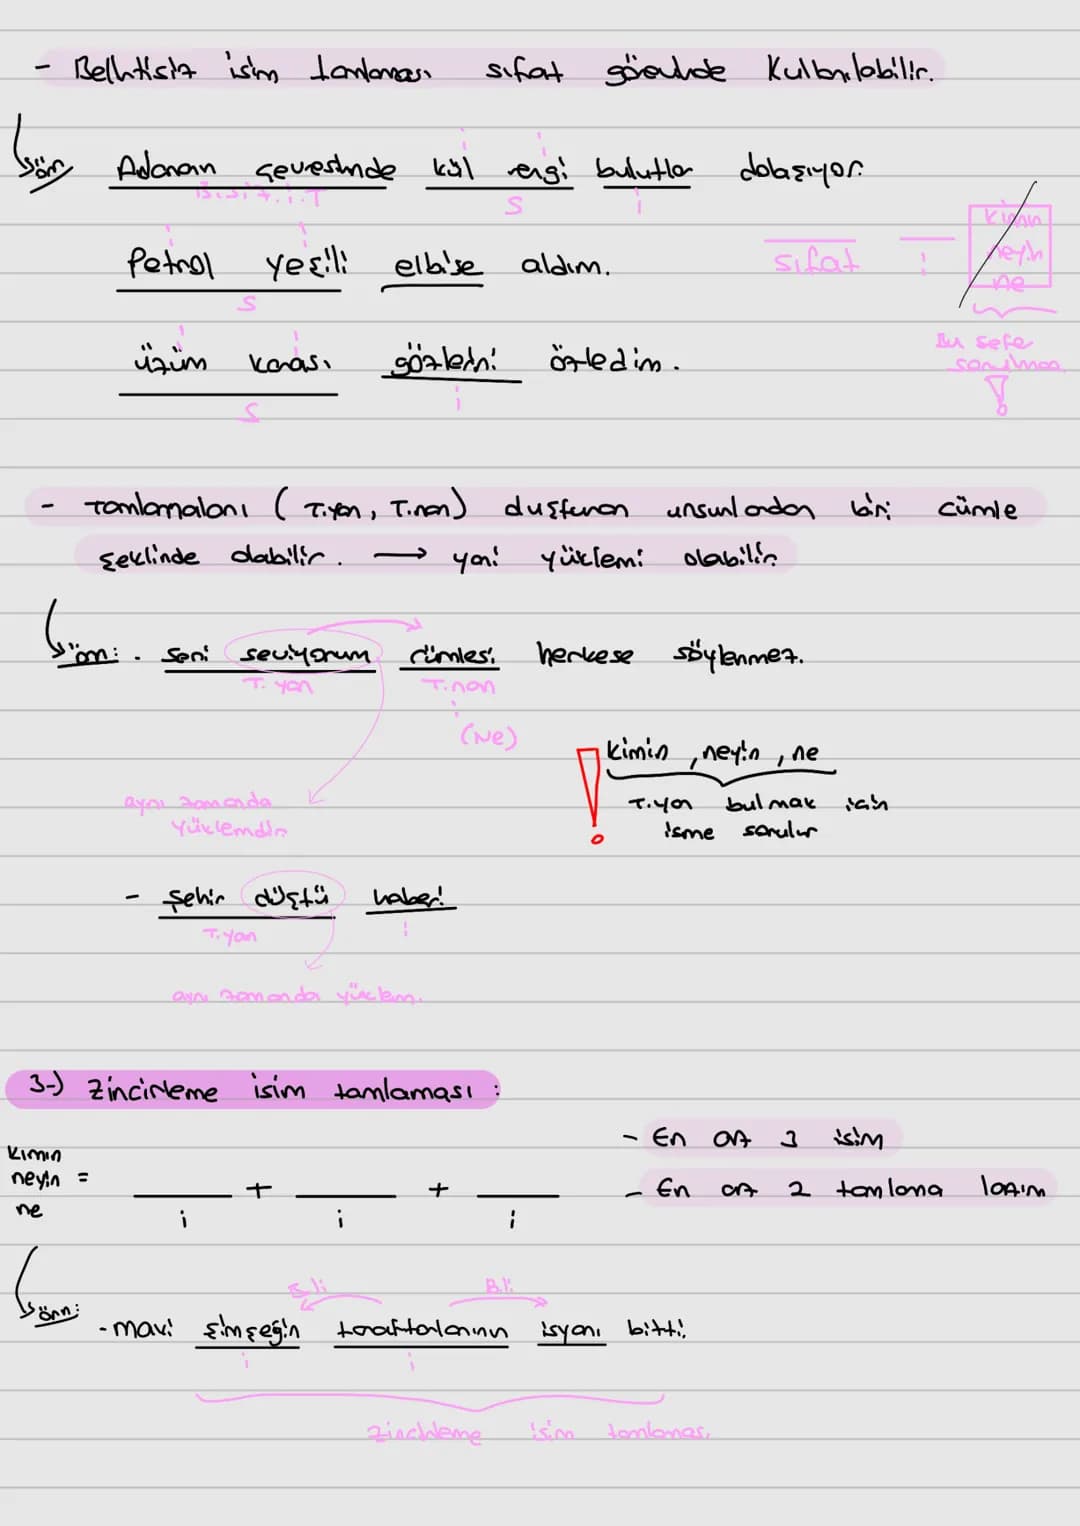 - Belirtisiz isim tamlaması sıfat görevinde kullanılabilir.
örn Adananın çevresinde kül rengi bulutlar dolaşıyor.
i i
B.siz.i.T S i
Petrol yeşili elbise aldım.
i i
S
sıfat i
kimin
neyin
ne
Bu sefer sorulmaz !
üzüm karası gözlerini özledim.
i i
S i
- Tamlamaları (T.yan, T.nan) oluşturan unsurlardan biri cümle
şeklinde olabilir. → yani yüklemi olabilir.
örn: . Seni seviyorum cümlesi herkese söylenmez.
T. yan T.nan
i
(Ne)
aynı zamanda
yüklemdir
! kimin, neyin, ne
T.yan bulmak için
isme sorulur
- Şehir düştü haberi
T.yan i
aynı zamanda yüklem.
3-) Zincirleme isim tamlaması :
- En az 3 isim
- En az 2 tamlama lazım
Kimin
neyin =
ne
___ + ___ + ___
i i i
örn:
B.li B.li
- mavi şimşeğin taraftarlarının isyanı bitti.
i i
zincirleme isim tamlaması